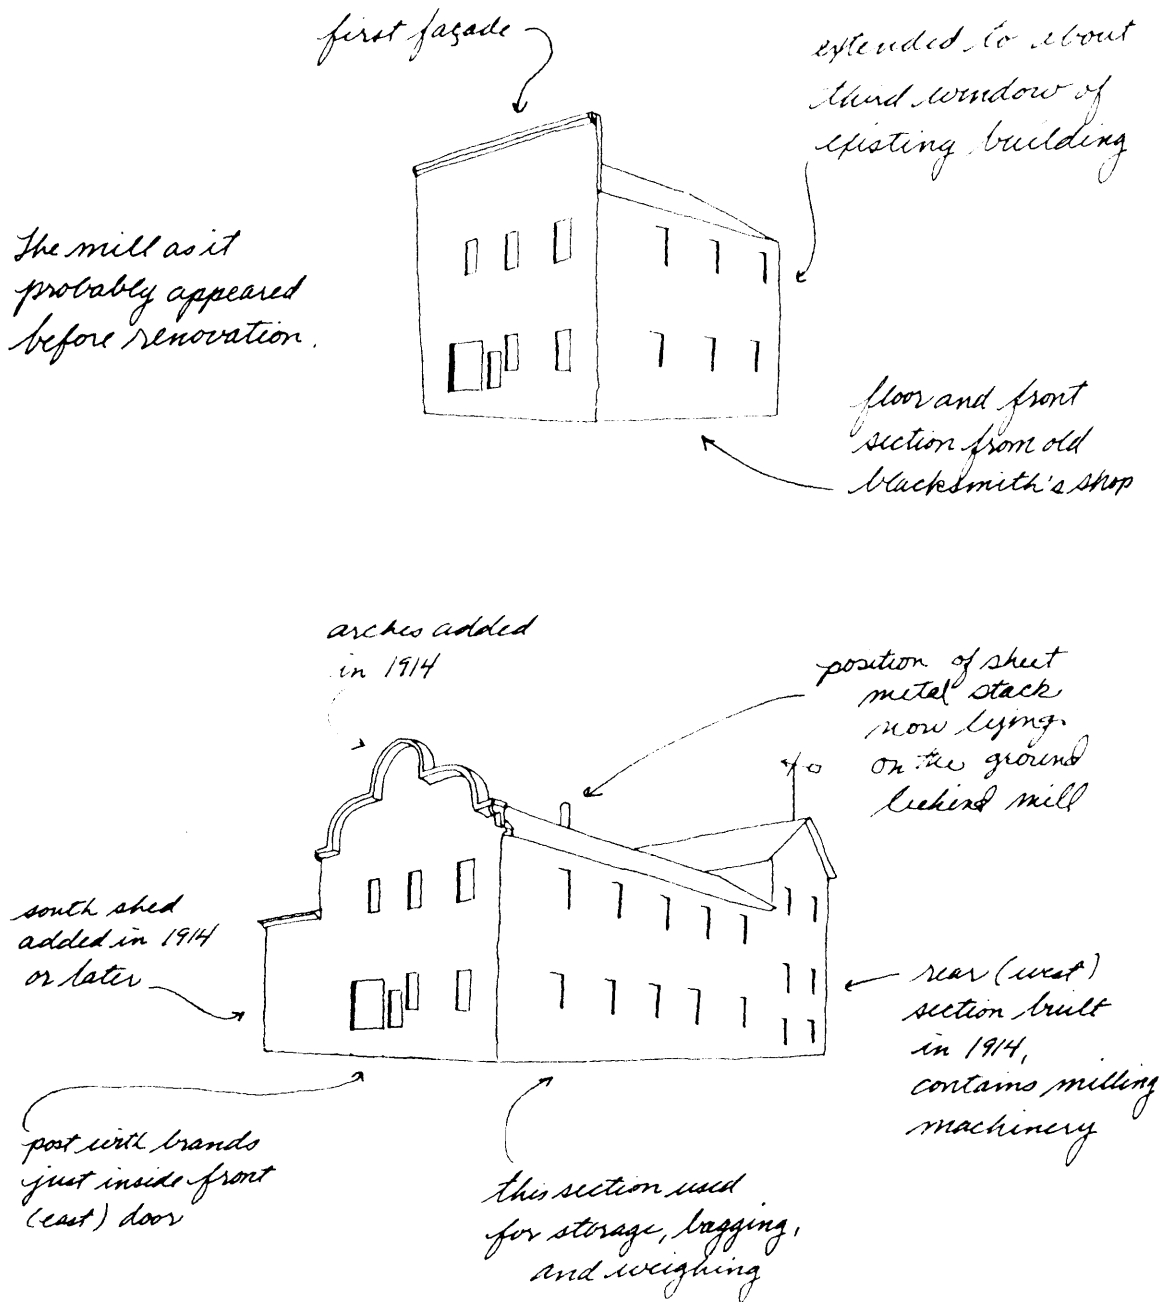 first façade
extended to about
third window of
existing building
The mill as it
probably appeared
before renovation.
floor and front
section from old
blacksmith's shop
arches added
in 1914
position of sheet
metal stack
now lying
on the ground
behind mill
south shed
added in 1914
or later
rear (west)
section built
in 1914,
contains milling
machinery
post with brands
just inside front
(east) door
this section used
for storage, bagging,
and weighing